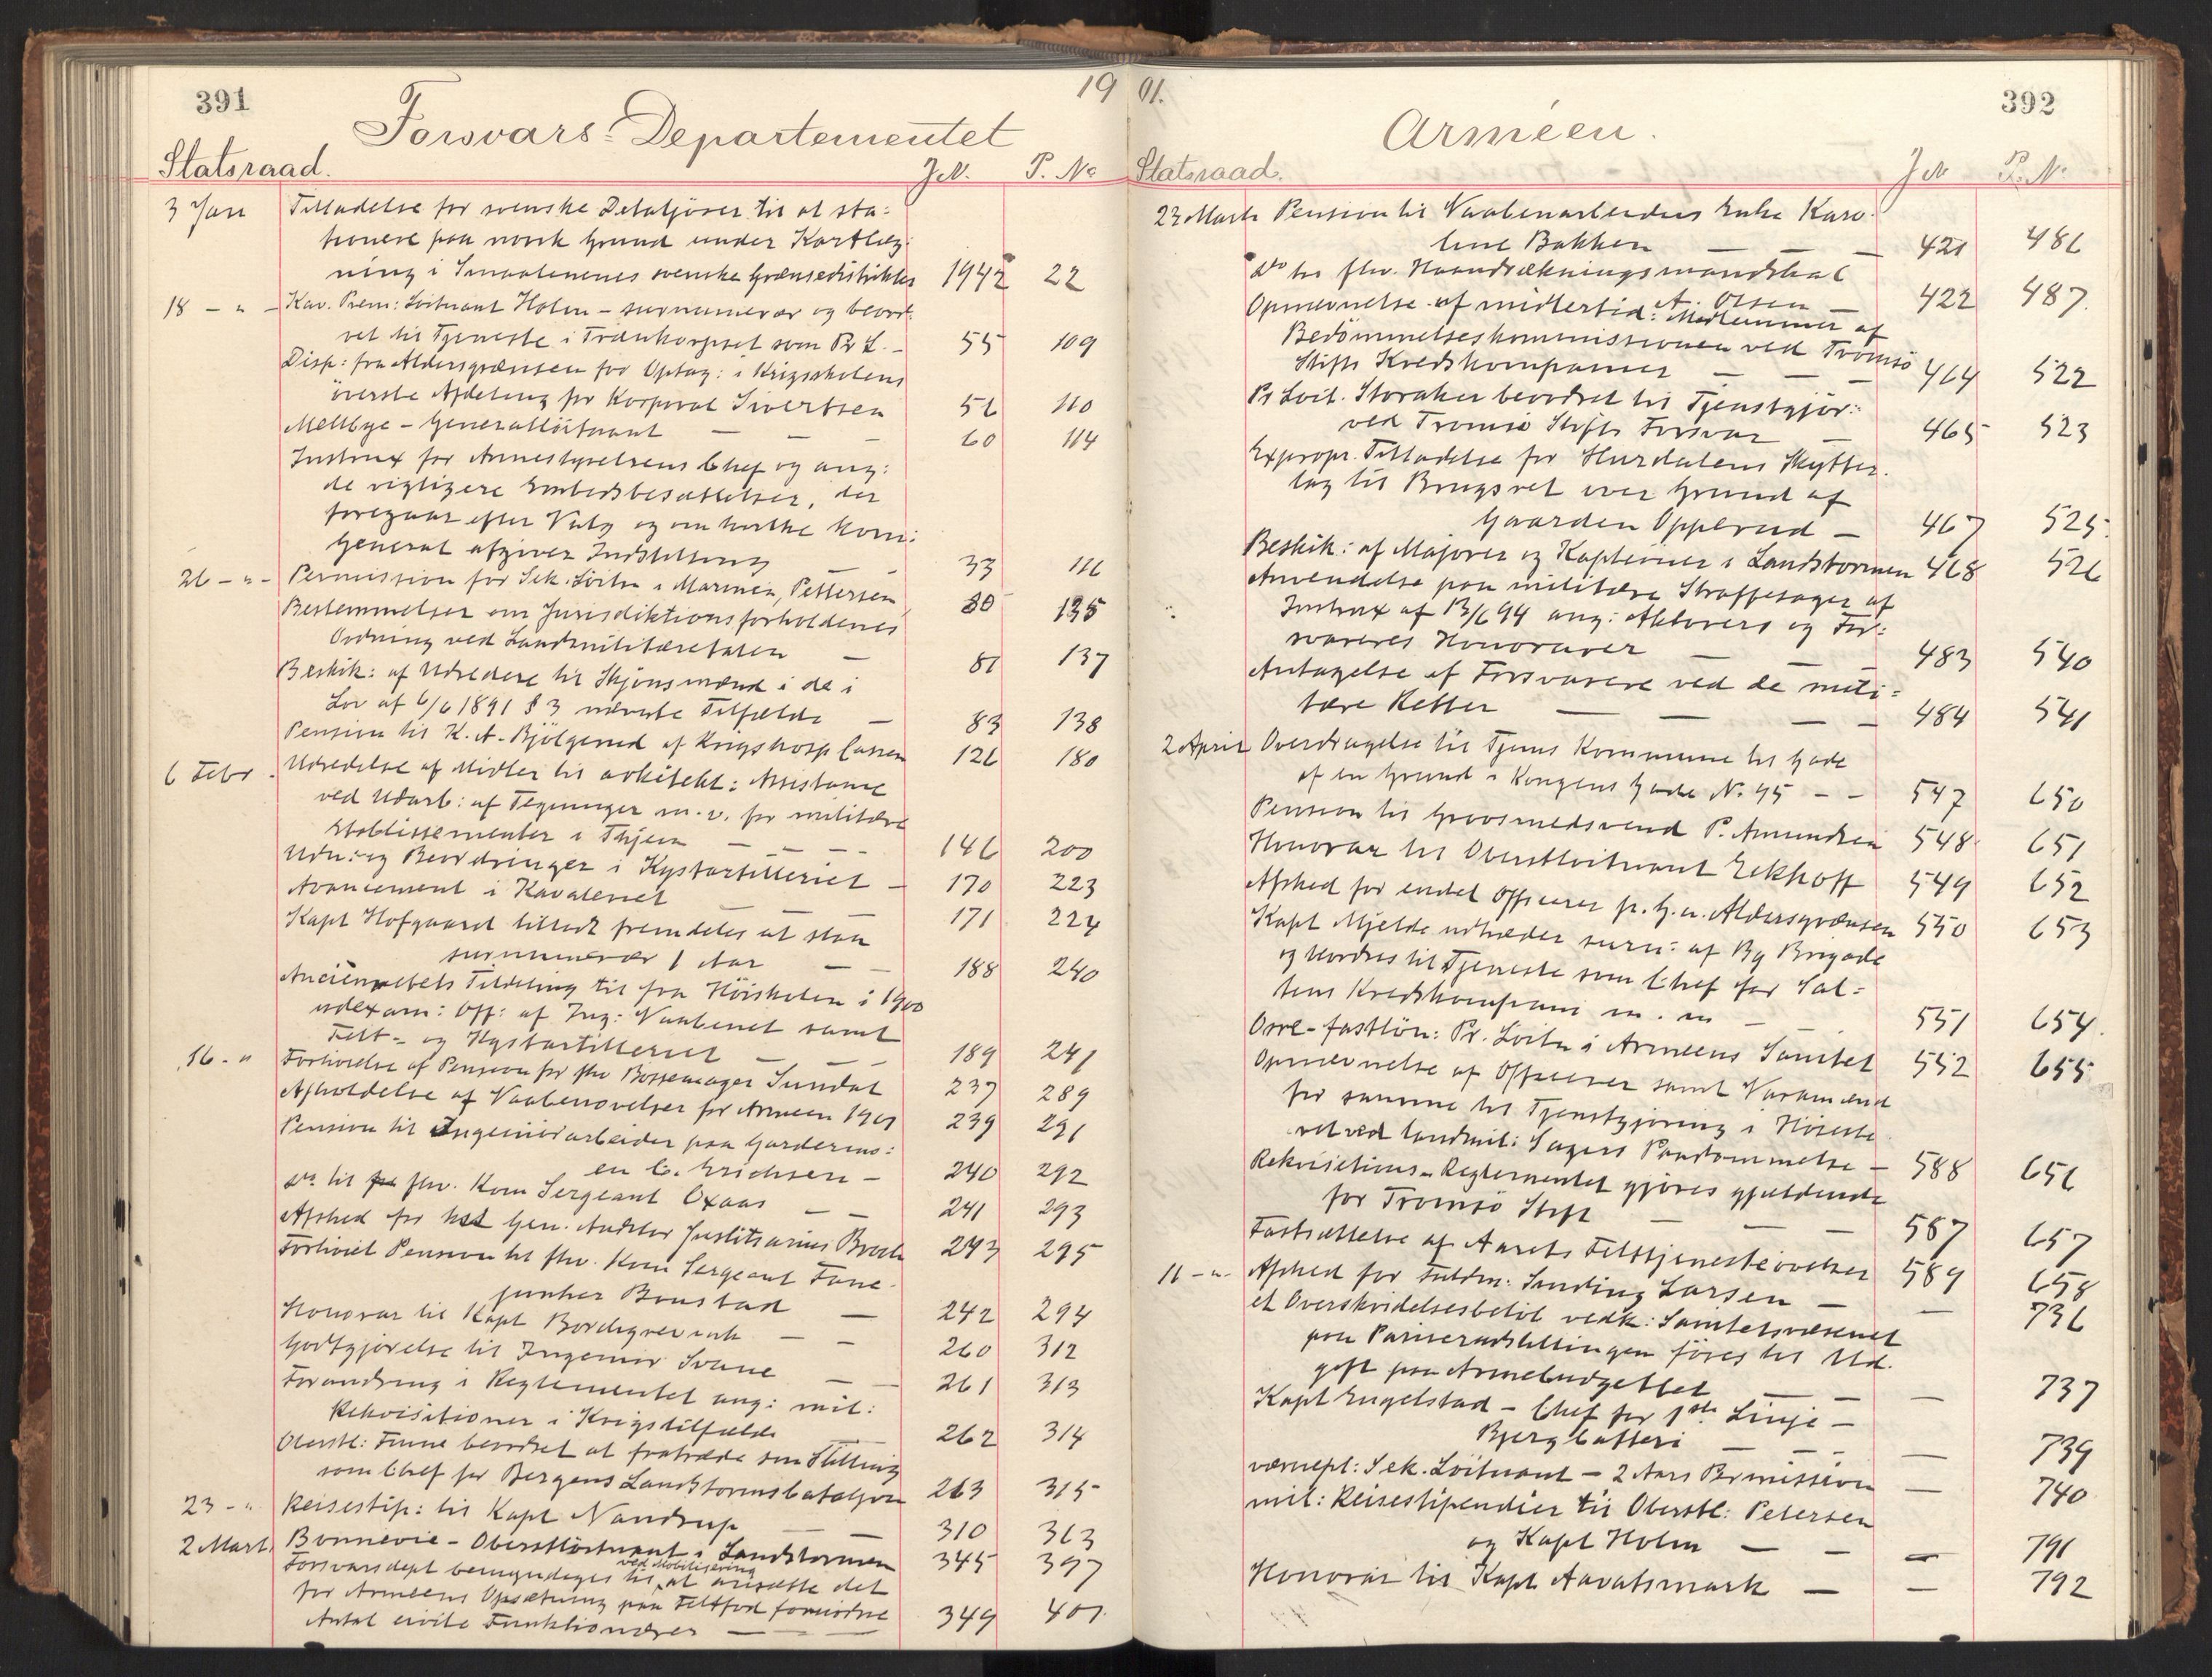 391
19
Forsvars-Departementet
Statsraad.
J.N.
P. No
3 Jan
Tilladelse for svenske Detaljører til at sta-
tionere paa norsk Grund under Kartlæg-
ning i Smaalenenes svenske Grænsedistrikter 1942 22
18 - " - Kav. Prem: Løitnant Holm - surnumerær og beord-
ret til Tjeneste i Trænkorpset som Pr L. - 55 109
Disp: fra Aldersgrænsen for Optag: i Krigsskolens
överste Afdeling for Korporal Sivertsen 56 110
Mellbye - Generalløitnant - - - 60 114
Instrux for Armestyrelsens Chef og ang:
de vigtigere Embedsbesættelser, der
foregaar efter Valg og om hvilke Kom:
General afgiver Indstilling - 33 116
26 - " - Permission for Sek. Løitn i Marinen, Pettersen 80 135
Bestemmelser om Jurisdiktionsforholdenes
Ordning ved Landmilitæretaten - 81 137
Beskik: af Udredere til Skjönsmænd i de i
Lov af 6/6 1891 § 3 nævnte Tilfælde - 83 138
Pension til K. A. Bjölgerud af Krigshosp Cassen 126 180
6 Febr. Udredelse af Midler til arkitekt: Assistance
ved Udarb: af Tegninger m. v. for militære
Etablissementer i Thjem - - - 146 200
Udn: og Beordringer i Kystartilleriet - 170 223
Avancement i Kavaleriet - - 171 224
Kapt Hofgaard tilladt fremdeles at staa
surnumerær 1 Aar - - 188 240
Anciennetets Tildeling til fra Höiskolen i 1900
udexam: Off: af Ing: Vaabenet samt
Felt- og Kystartilleriet - - 189 241
16 - " Forhöielse af Pension for fhv Bössemager Sundal 237 289
Afholdelse af Vaabenøvelser for Armeen 1901 239 291
Pension til Ingeniörarbeider paa Gardermo-
en C. Erichsen - 240 292
Do til fhv. Kom Sergeant Oxaas - - 241 293
Afsked for Gen. Auditør Justitiarius Broch 243 295
Forhöiet Pension til fhv. Kom Sergeant Fane-
junker Bonstad - 242 294
Honorar til Kapt Bordegrevink - - 260 312
Godtgjörelse til Ingeniör Svane - - 261 313
Forandring i Reglementet ang: mil:
Rekvisitioner i Krigstilfælde - 262 314
Oberstl: Finne beordret at fratræde sin Stilling
som Chef for Bergens Landstormsbataljon 263 315
23 - " Reisestip: til Kapt Nandrup - - 310 363
2 Mart. Bonnevie - Oberstlöitnant i Landstormen 345 397
ved Mobilisering
Forsvarsdept bemyndiges til at ansætte det
for Armeens Opsætning paa Feltfod fornödne
Antal civile Funktionærer - - - 349 401
01.
392
Arméen.
Statsraad.
J N
P. N.
23 Marts Pension til Vaabenarbeiders Enke Karo-
line Bakken - - - 421 486
Do til fhv. Haandrækningsmandskab
A. Olsen - 422 487.
Opnævnelse af midlertid: Medlemmer af
Bedömmelseskommissionen ved Tromsö
Stifts Kredskompanier - - - 464 522
Pr Löit. Storaker beordret til Tjenstgjör:
ved Tromsö Stifts Forsvar - 465 523
Expropr. Tilladelse for Hurdalens Skytter-
lag til Brugsret over Grund af
Gaarden Opperud - 467 525.
Beskik: af Majorer og Kapteiner i Landstormen 468 526
Anvendelse paa militære Straffesager af
Instrux af 13/6 94 ang: Aktorers og For-
svareres Honorarer - - 483 540
Antagelse af Forsvarere ved de mili-
tære Retter - - - - 484 541
2 April Overdragelse til Tjems Kommune til Gade
af en Grund i Kongens Gade N. 95 - - 547 650
Pension til Grovsmedsvend P. Amundsen 548 651
Honorar til Oberstlöitnant Eckhoff 549 652
Afsked for endel Officerer p. G. a. Aldersgrænsen 550 653
Kapt Mjelde udtræder surn: af Bg Brigade
og beordres til Tjeneste som Chef for Sal-
tens Kredskompani m. m - - 551 654.
Ovre-fastlön: Pr. Löitn i Armeens Sanitet 552 655
Opnævnelse af Officerer samt Varamænd
for samme til Tjenstgjöring i Höieste-
ret ved landmil: Sagers Paadömmelse - 588 656
Rekvisitions-Reglementet gjöres gjældende
for Tromsö Stift - - - 587 657
Fastsættelse af Aarets Felttjenesteövelser 589 658
11 - " - Afsked for Fuldm: Sending Larsen - - 736
et Overskridelsesbelöb vedk: Sanitetsvæsenet
paa Pariserudstillingen föres til Ud-
gift paa Armebudgettet - - - 737
Kapt Engelstad - Chef for 1ste Linje -
Bjergbatteri - - - - 739
værnepl: Sek. Löitnant - 2 Aars Permission - 740
mil: Reisestipendier til Oberstl: Petersen
og Kapt Holm - - - 791
Honorar til Kapt Aavatsmark - - 792